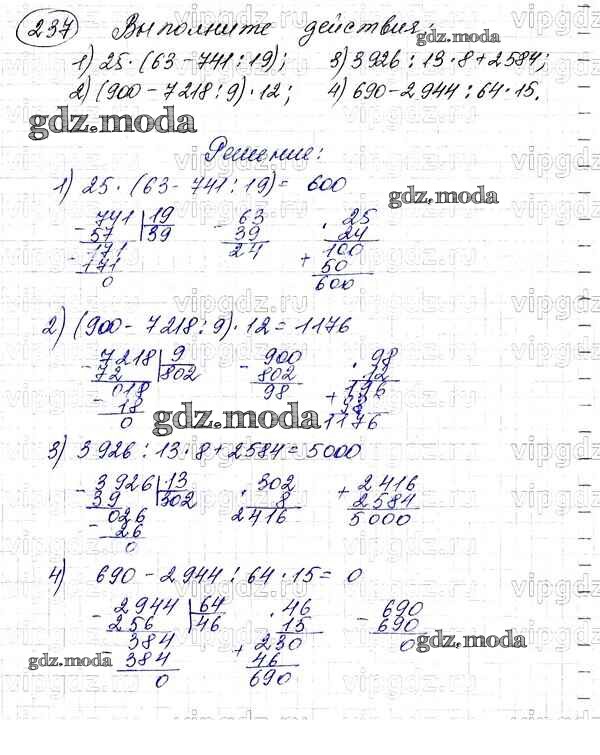 237 Выполните действия:
1) 25·(63-741:19); 3) 3926:13·8+2584;
2) (900-7218:9)·12; 4) 690-2944:64·15.
gdz.moda
Решение:
1) 25·(63-741:19)= 600
gdz.moda
741 19 63 25
-57 39 -39 ·24
171 24 100
-171 +50
0 600
2) (900-7218:9)·12=1176
7218 9 900 98
-72 802 -802 ·12
018 98 196
-18 +98
0 1176
gdz.moda
3) 3926:13·8+2584=5000
3926 13 302 2416
-39 302 ·8 +2584
026 2416 5000
-26
0
4) 690-2944:64·15= 0
2944 64 46 690
-256 46 ·15 -690
384 230 0
-384 +46
0 690
gdz.moda
gdz.moda
vipgdz.ru